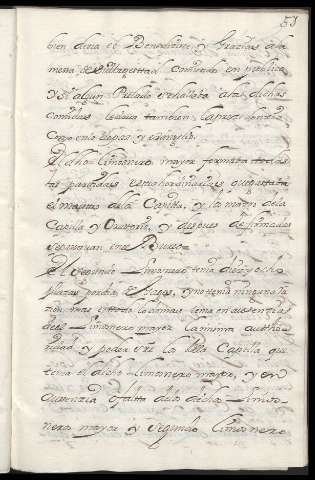 51
bien decia el Benedicite y Grazias a la
mesa de su Magestad comiendo en publico
y si algun Prelado se hallaba a tal dichas
comidas le daua tambien la
como en lo y euangelio.
El dho Limosnero mayor formaba todas
las partidas extrahordinarias que gastaba
el maestro de la Capilla, y los mozos de la
Capilla y Oratorio, y despues de firmadas
se ponian en el Bureo.
El segundo Limosnero tenia diez y ocho
plazas por dia de Gages, y no tenia ninguna ra
zion mas en todo lo demas tenia en ausenzia
del Limosnero mayor la misma autho
ridad y poder sre la Rl Capilla que
tenia el dicho Limosnero mayor, y en
ausenzia o falta de los dichos Limos-
nero mayor y segundo Limosnero